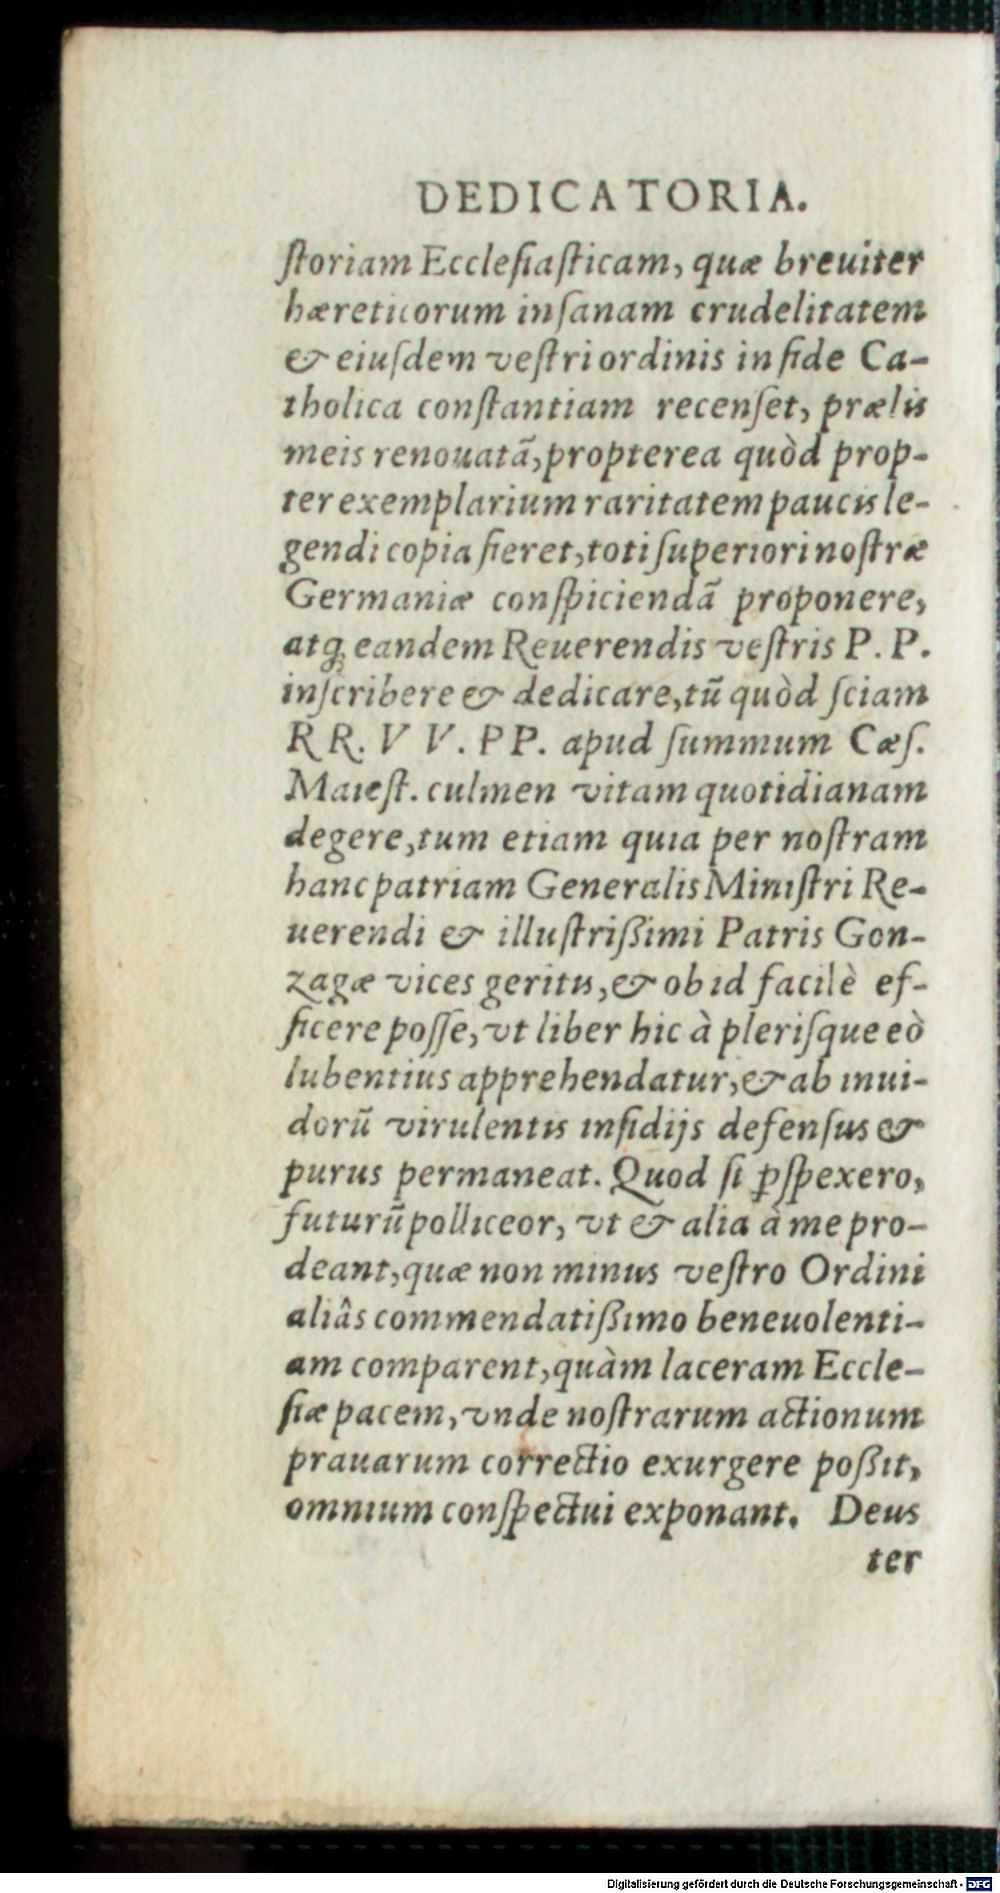 DEDICATORIA.
ſtoriam Eccleſiaſticam, quæ breuiter
hæreticorum inſanam crudelitatem
& eiuſdem veſtri ordinis in fide Ca-
tholica conſtantiam recenſet, prælis
meis renouatã, propterea quòd prop-
ter exemplarium raritatem paucis le-
gendi copia fieret, toti ſuperiori noſtræ
Germaniæ conſpiciendã proponere,
atq; eandem Reuerendis veſtris P. P.
inſcribere & dedicare, tũ quòd ſciam
RR. VV. PP. apud ſummum Cæſ.
Maieſt. culmen vitam quotidianam
degere, tum etiam quia per noſtram
hanc patriam Generalis Miniſtri Re-
uerendi & illuſtrißimi Patris Gon-
zagæ vices geritis, & ob id facilè ef-
ficere poſſe, vt liber hic à pleriſque eò
lubentius apprehendatur, & ab inui-
dorũ virulentis inſidijs defenſus &
purus permaneat. Quod ſi ꝑſpexero,
futurũ polliceor, vt & alia à me pro-
deant, quæ non minus veſtro Ordini
aliâs commendatißimo beneuolenti-
am comparent, quàm laceram Eccle-
ſiæ pacem, vnde noſtrarum actionum
prauarum correctio exurgere poßit,
omnium conſpectui exponant. Deus
ter
Digitalisierung gefördert durch die Deutsche Forschungsgemeinschaft - DFG